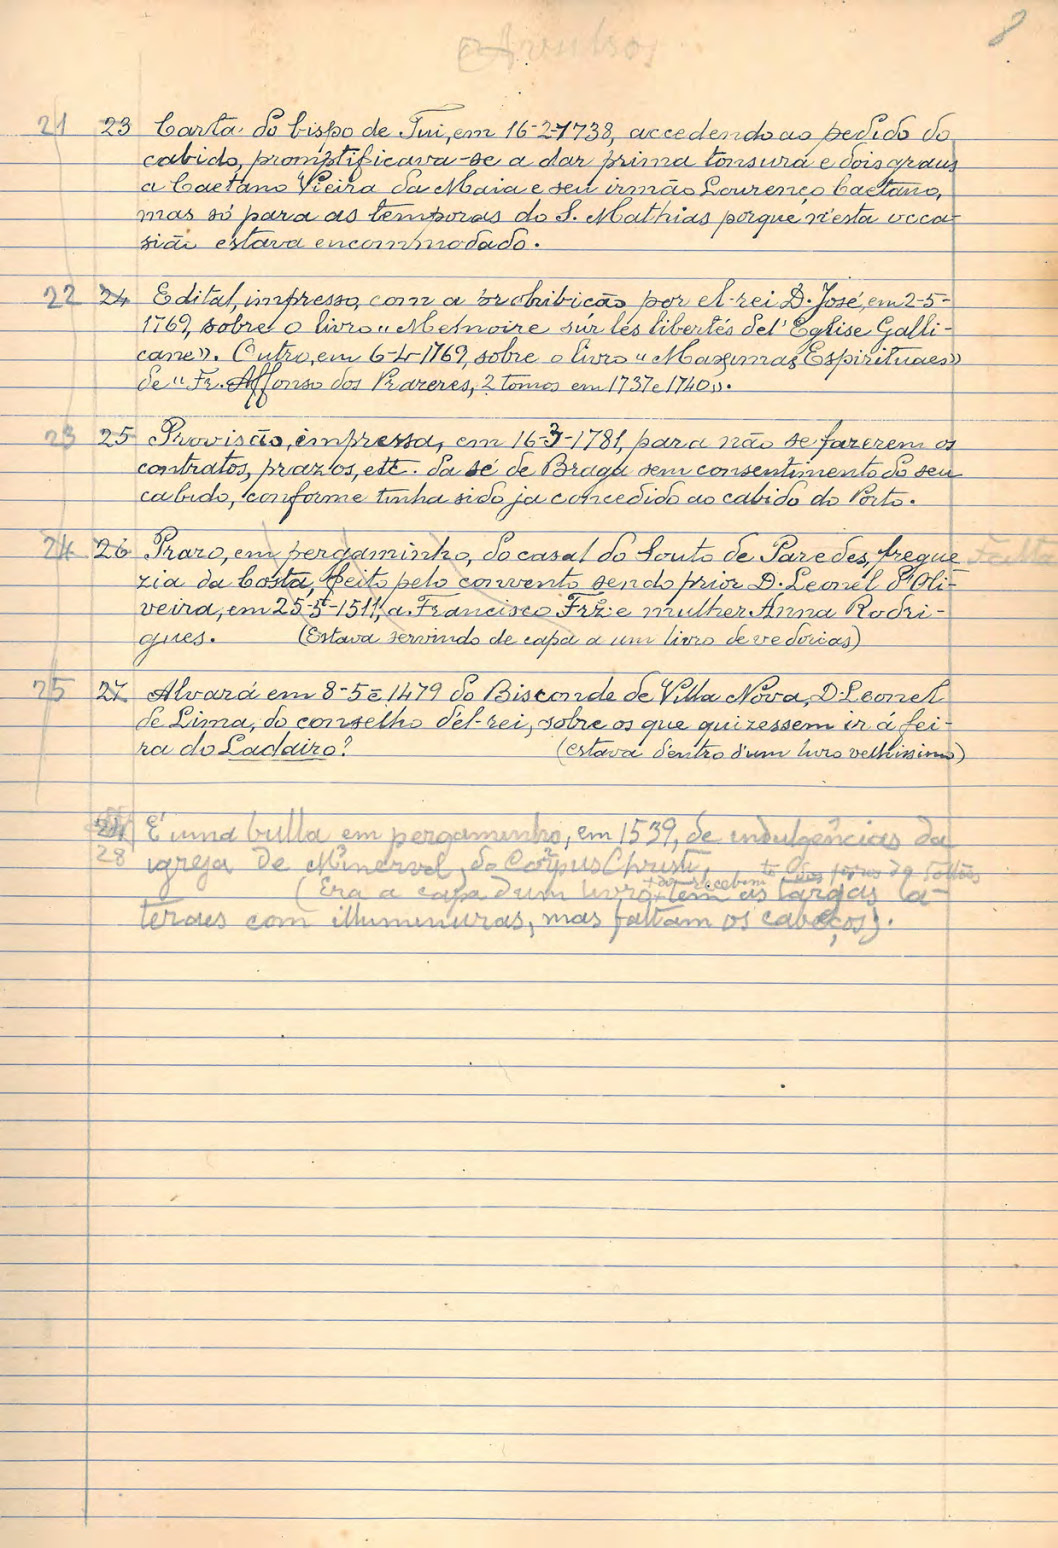 Avulsos
8
21 23 Carta do bispo de Tui, em 16-2-1738, accedendo ao pedido do
cabido, promptificava-se a dar prima tonsura e dois graus
a Caetano Vieira da Maia e seu irmão Lourenço Caetano,
mas só para as temporas do S. Mathias porque n'esta occa-
sião estava encommodado.
22 24 Edital, impresso, com a prohibição por el-rei D. José, em 2-5-
1769, sobre o livro "Memoire súr lés libertés del' Eglise Galli-
cane". Outro, em 6-4-1769, sobre o livro "Maximas Espirituaes"
de "Fr. Affonso dos Prazeres, 2 tomos em 1737 e 1740".
23 25 Provisão, impressa, em 16-3-1781, para não se fazerem os
contratos, prazos, etc. da sé de Braga sem consentimento do seu
cabido, conforme tinha sido ja concedido ao cabido do Porto.
24 26 Prazo, em pergaminho, do casal do Souto de Paredes, fregue
zia da Costa, feito pelo convento sendo prior D. Leonel d'Oli-
veira, em 25-5-1511, a Francisco Frz e mulher Anna Rodri-
gues. (Estava servindo de capa a um livro de vedorias)
Falta
25 27 Alvará em 8-5-1479 do Bisconde de Villa Nova, D. Leonel
de Lima, do conselho d'el-rei, sobre os que quizessem ir á fei-
ra do Ladairo? (estava dentro d'um livro velhissimo)
28 É uma bulla em pergaminho, em 1539, de indulgências da
igreja de Minerva, do Corpus Christi
(Era a capa dum livro tem as targas la-
teraes com illuminuras, mas faltam os cabeços).